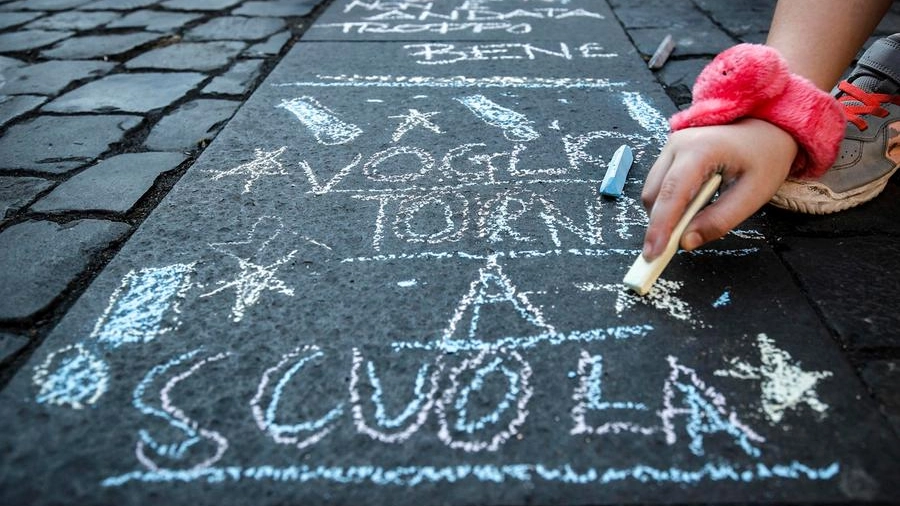 ANDATA
TROPPO
BENE
VOGLIO
TORNA
A
SCUOLA